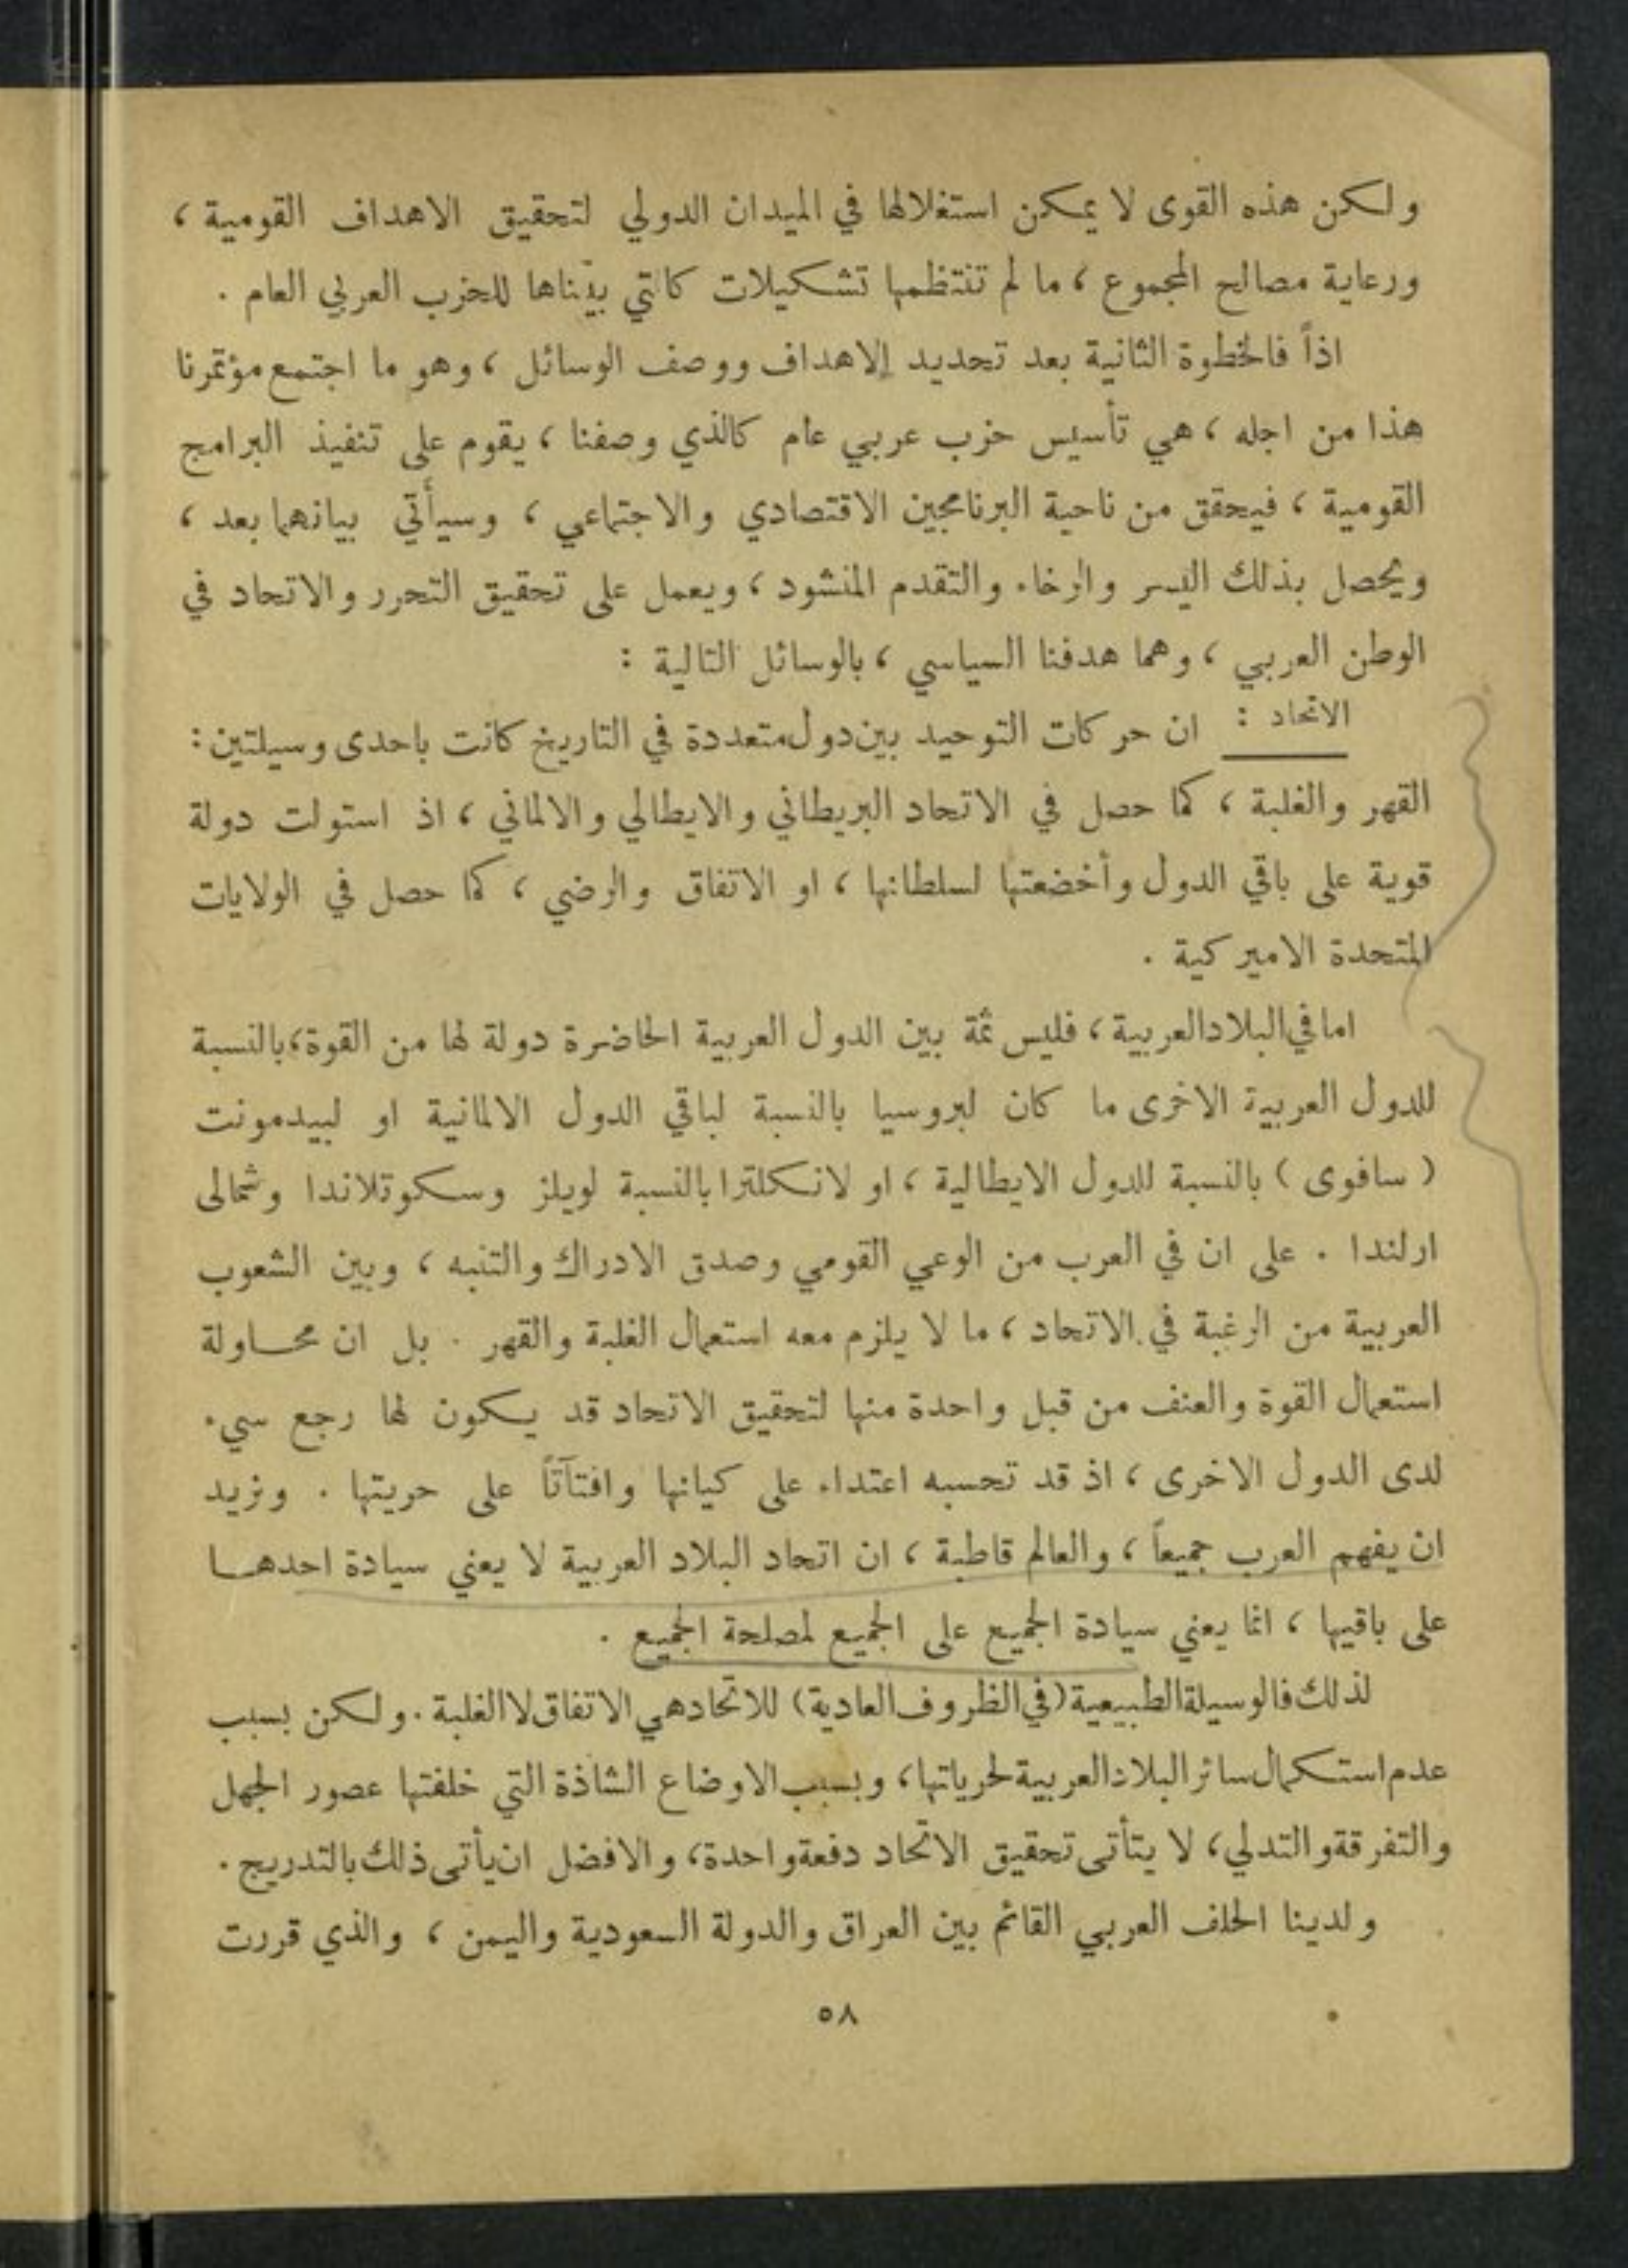 ولكن هذه القوى لا يمكن استغلالها في الميدان الدولي لتحقيق الاهداف القومية ،
ورعاية مصالح المجموع ، ما لم تنتظمها تشكيلات كالتي بيّناها للحزب العربي العام .
اذاً فالخطوة الثانية بعد تحديد الاهداف ووصف الوسائل ، وهو ما اجتمع مؤتمرنا
هذا من اجله ، هي تأسيس حزب عربي عام كالذي وصفنا ، يقوم على تنفيذ البرامج
القومية ، فيحقق من ناحية البرنامجين الاقتصادي والاجتماعي ، وسيأتي بيانهما بعد ،
ويحصل بذلك اليسر والرخاء والتقدم المنشود ، ويعمل على تحقيق التحرر والاتحاد في
الوطن العربي ، وهما هدفنا السياسي ، بالوسائل التالية :
الاتحاد : ان حركات التوحيد بين دول متعددة في التاريخ كانت باحدى وسيلتين :
القهر والغلبة ، كما حصل في الاتحاد البريطاني والايطالي والالماني ، اذ استولت دولة
قوية على باقي الدول وأخضعتها لسلطانها ، او الاتفاق والرضي ، كما حصل في الولايات
المتحدة الاميركية .
اما في البلاد العربية ، فليس ثمة بين الدول العربية الحاضرة دولة لها من القوة ، بالنسبة
للدول العربية الاخرى ما كان لبروسيا بالنسبة لباقي الدول الالمانية او لبيدمونت
( سافوى ) بالنسبة للدول الايطالية ، او لانكلترا بالنسبة لويلز وسكوتلاندا وشمالى
ارلندا . على ان في العرب من الوعي القومي وصدق الادراك والتنبه ، وبين الشعوب
العربية من الرغبة في الاتحاد ، ما لا يلزم معه استعمال الغلبة والقهر . بل ان محاولة
استعمال القوة والعنف من قبل واحدة منها لتحقيق الاتحاد قد يكون لها رجع سيء
لدى الدول الاخرى ، اذ قد تحسبه اعتداء على كيانها وافتآتاً على حريتها . ونريد
ان يفهم العرب جميعاً ، والعالم قاطبة ، ان اتحاد البلاد العربية لا يعني سيادة احدها
على باقيها ، انما يعني سيادة الجميع على الجميع لمصلحة الجميع .
لذلك فالوسيلة الطبيعية ( في الظروف العادية ) للاتحاد هي الاتفاق لا الغلبة . ولكن بسبب
عدم استكمال سائر البلاد العربية لحرياتها ، وبسبب الاوضاع الشاذة التي خلفتها عصور الجهل
والتفرقة والتدلي ، لا يتأتى تحقيق الاتحاد دفعة واحدة ، والافضل ان يأتى ذلك بالتدريج .
ولدينا الحلف العربي القائم بين العراق والدولة السعودية واليمن ، والذي قررت
٥٨